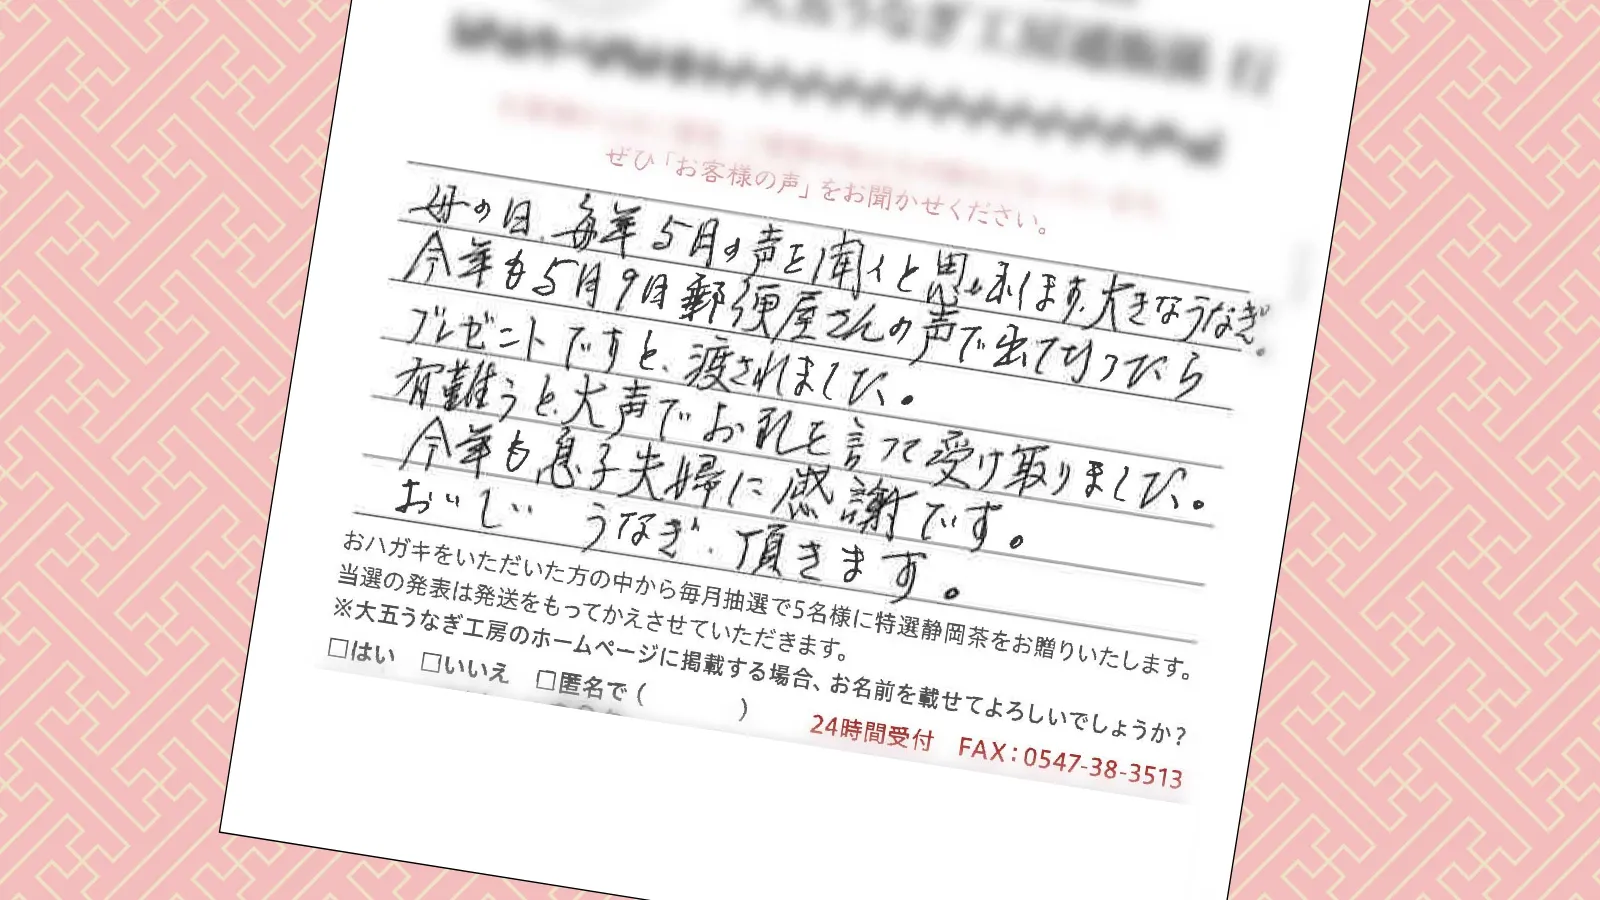 大五うなぎ工房通販係 行
ぜひ「お客様の声」をお聞かせください。
母の日、毎年5月の声を聞くと思い出します。大きなうなぎ。
今年も5月9日郵便屋さんの声で出て行ったら
プレゼントですと、渡されました。
有難うと、大声でお礼を言って受け取りました。
今年も息子夫婦に感謝です。
おいしい うなぎ、頂きます。
おハガキをいただいた方の中から毎月抽選で5名様に特選静岡茶をお贈りいたします。
当選の発表は発送をもってかえさせていただきます。
※大五うなぎ工房のホームページに掲載する場合、お名前を載せてよろしいでしょうか?
□はい □いいえ □匿名で( )
24時間受付 FAX:0547-38-3513